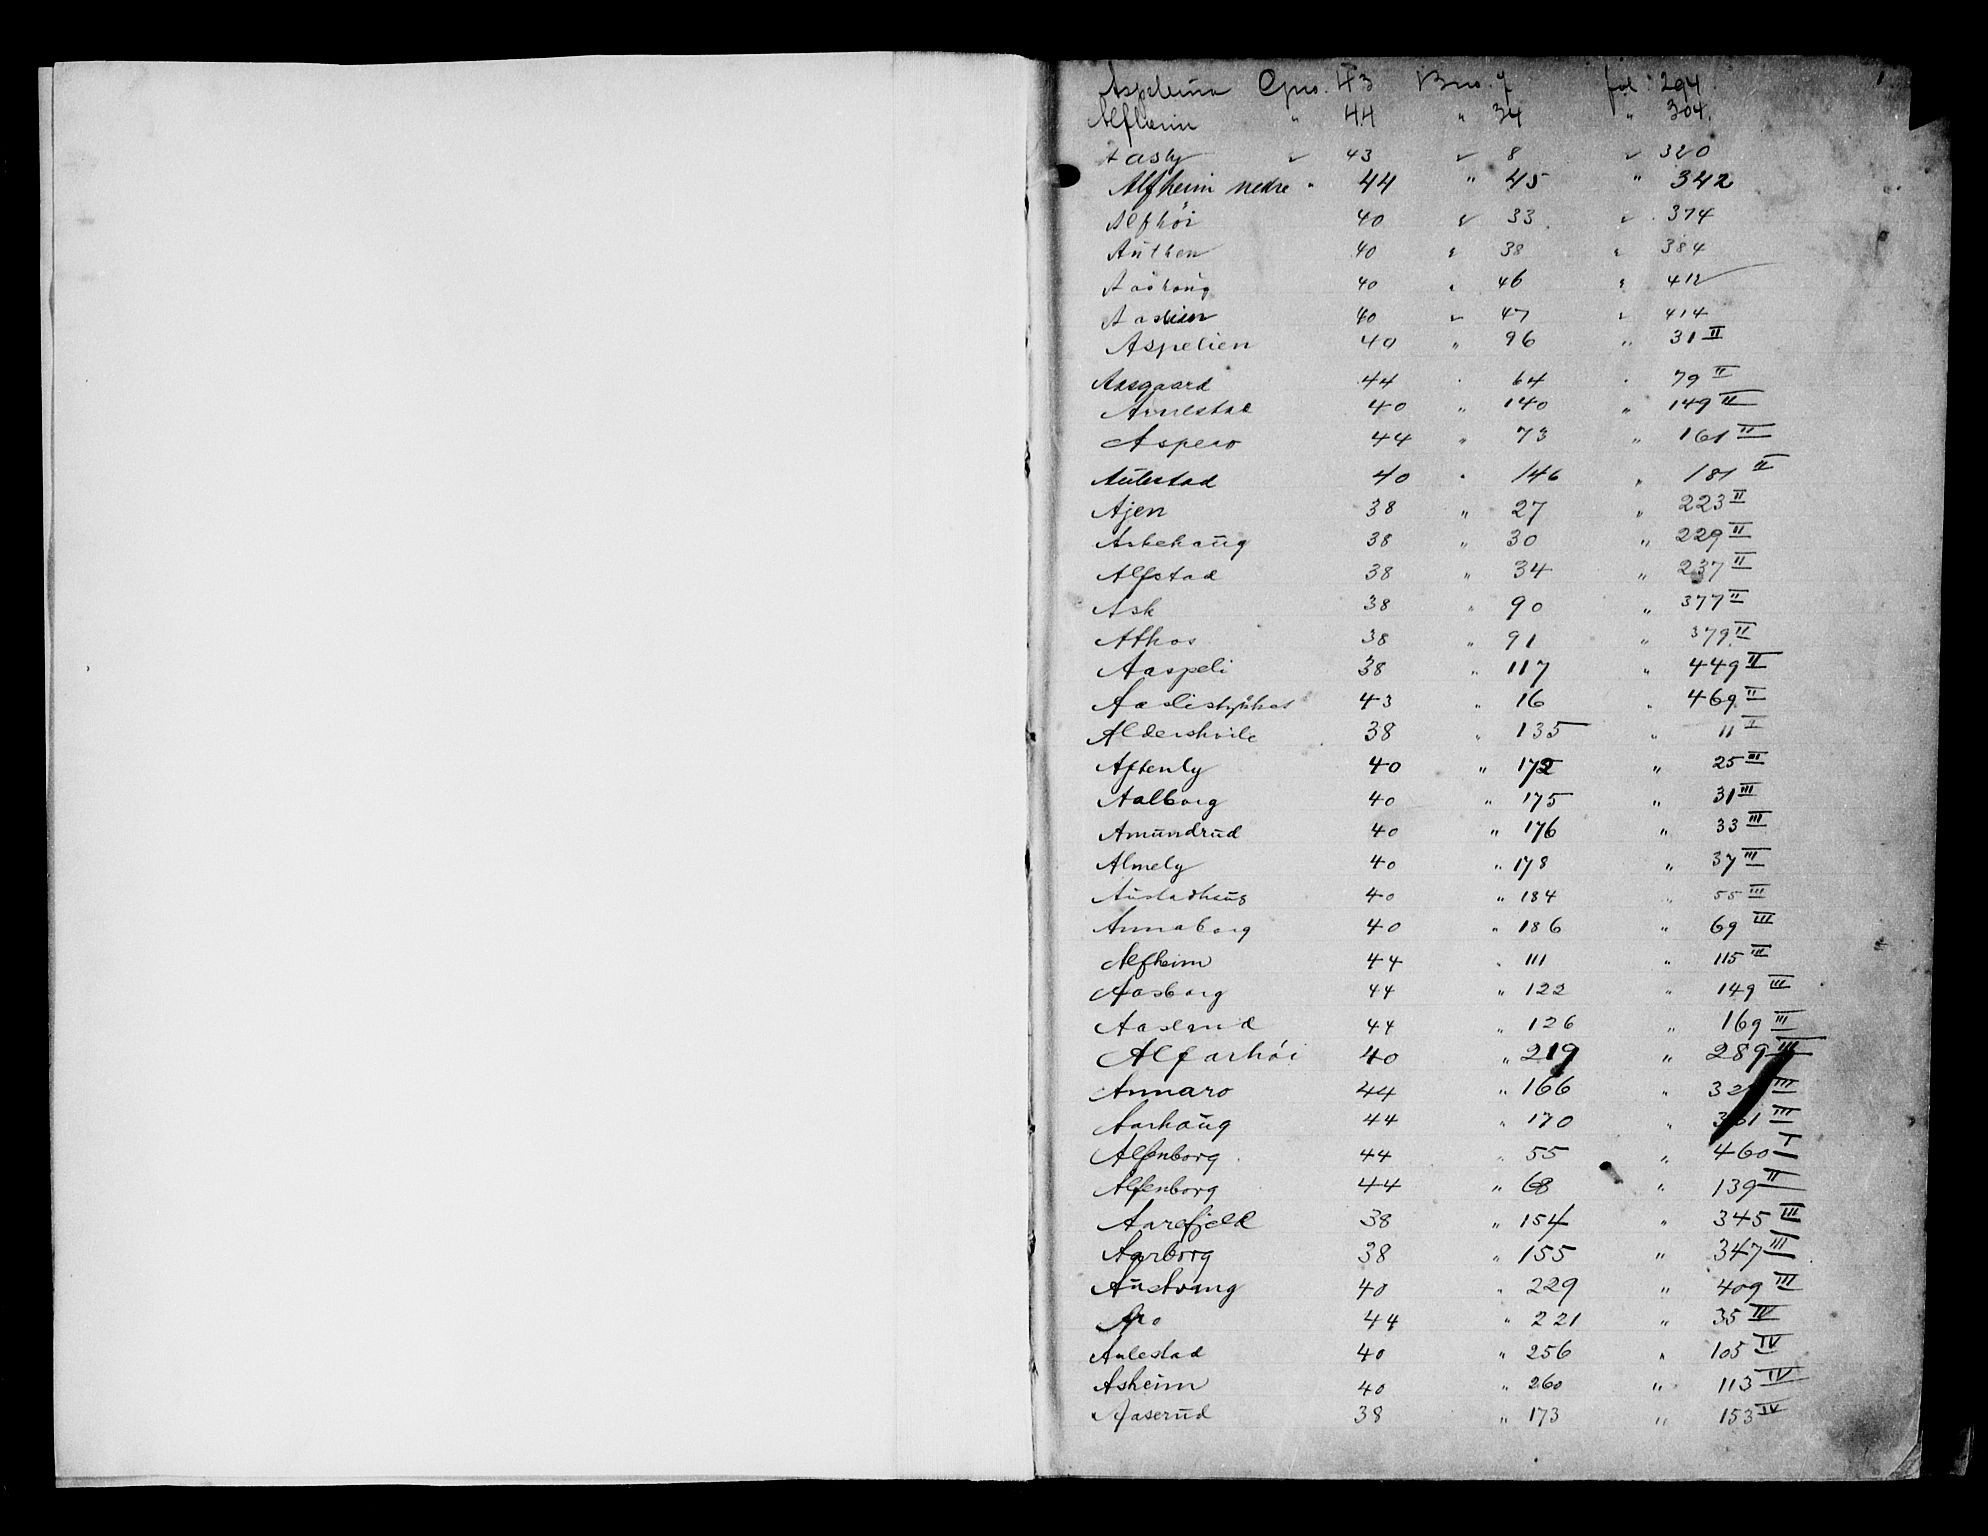 1
Gno. 43 Bno. 7 fol 294.
Alfheim " 44 " 34 " 304.
Aasly " 43 " 8 " 320
Alfheim nedre " 44 " 45 " 342
Alfhöi 40 " 33. " 374
Authen 40 " 38 " 384
Aashöug 40 " 46 " 412
Aaslien 40 " 47 " 414
Aspelien 40 " 96 " 31 II
Aasgaard 44 " 64 " 79 II
Arnestad 40 " 140 " 149 II
Aspero 44 " 73 " 161 II
Aulestad 40 " 146 " 181 II
Ajen 38 " 27 " 223 II
Askehaug 38 " 30 " 229 II
Alfstad 38 " 34 " 237 II
Ask 38 " 90 " 377 II
Athos 38 " 91 " 379 II
Aaspeli 38 " 117 " 449 II
Aaslistykket 43 " 16 " 469 II
Aldershvile 38 " 135 " 11
Aftenly 40 " 172 " 25 III
Aalborg 40 " 175 " 31 III
Amundrud 40 " 176 " 33 III
Almely 40 " 178 " 37 III
Austadhaug 40 " 184 " 55 III
Annaborg 40 " 186 " 69 III
Alfheim 44 " 111 " 115 III
Aasborg 44 " 122 " 149 III
Aaslund 44 " 126 " 169 III
Alfarhöi 40 " 219 " 289 III
Annaro 44 " 166 " III
Aarhaug 44 " 170 " III
Alfenborg. 44 " 55 " 460 I
Alfenborg 44 " 68 " 139 II
Aarefjeld 38 " 154 " 345 III
Aarborg 38 " 155 " 347 III
Austvang 40 " 229 " 409 III
44 " 221 " 35 IV
Aulestad 40 " 256 " 105 IV
Asheim 40 " 260 " 113 IV
Aaserud 38 " 173 " 153 IV